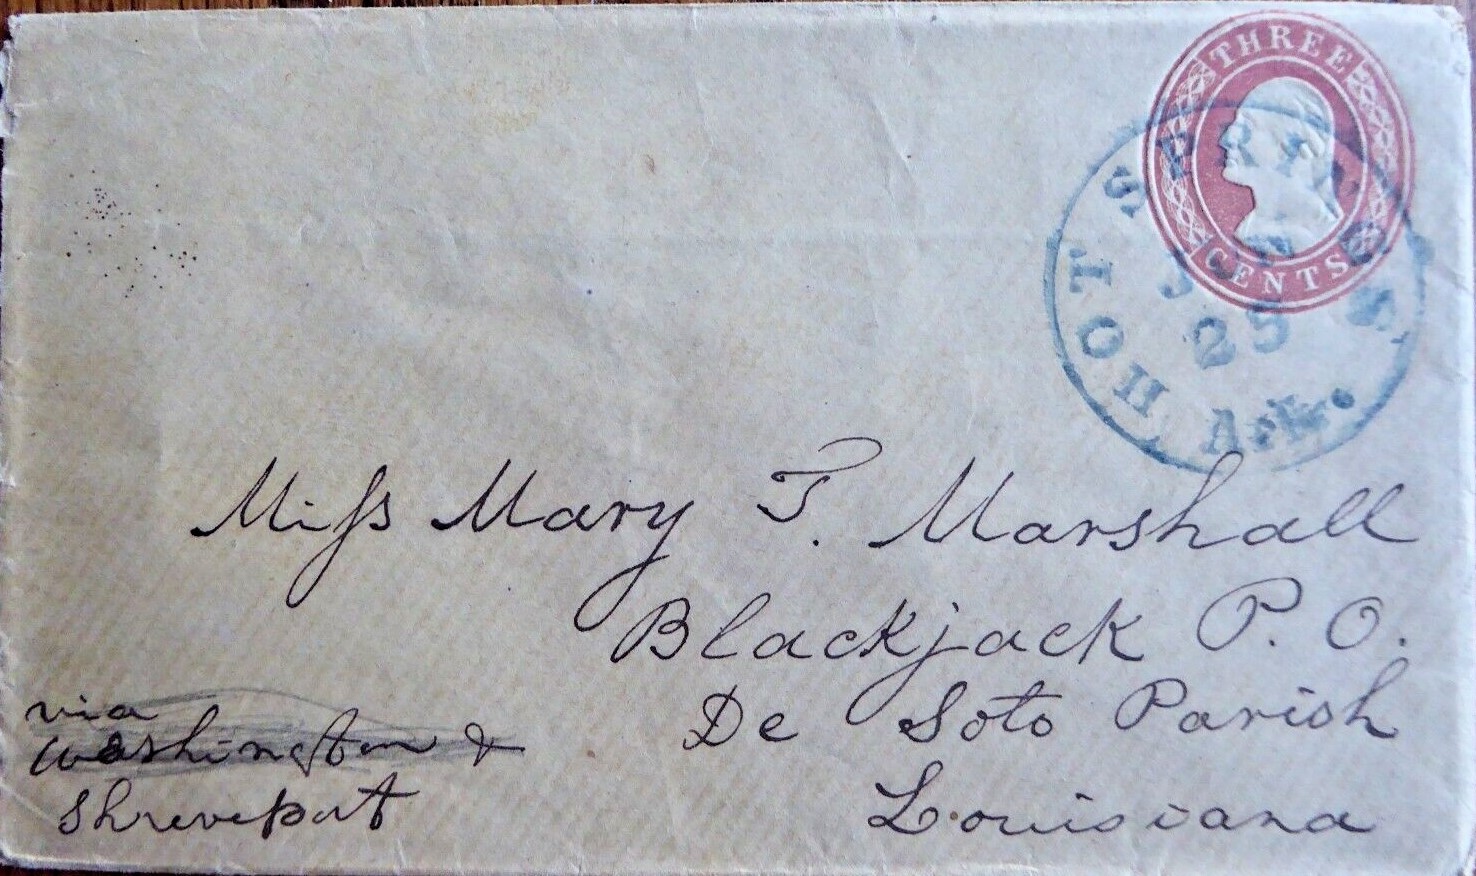 THREE
CENTS
HOT SPRINGS
25
Ark.
Miſs Mary T. Marshall
Blackjack P. O.
De Soto Parish
Louisiana
via
Washington &
Shreveport